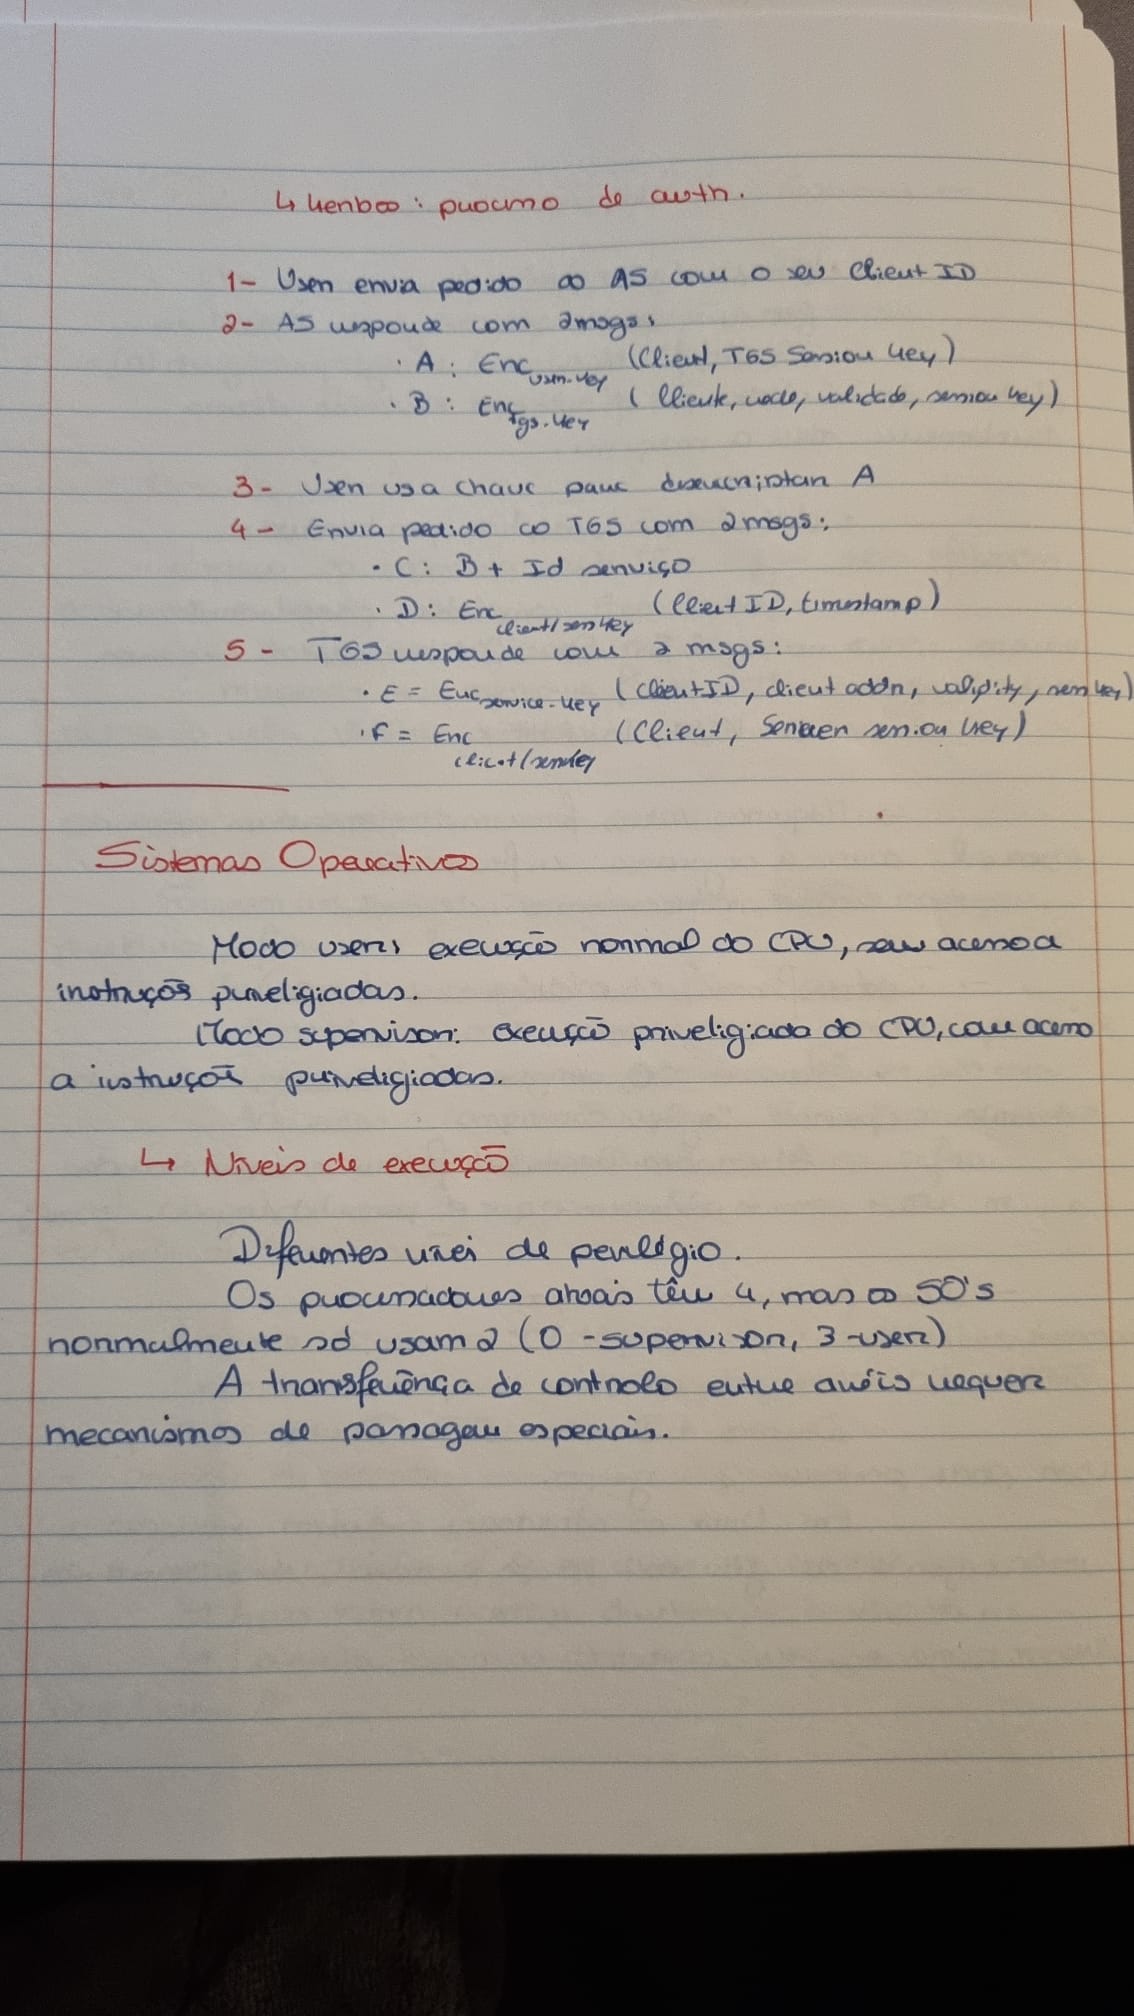 ↳ Kerberos: processo de auth.
1- User envia pedido ao AS com o seu Client ID
2- AS responde com 2 msgs:
· A: Enc user-key (Client, TGS Session key)
· B: Enc tgs-key (Cliente, validade, session key)
3- User usa chave para desencriptar A
4- Envia pedido ao TGS com 2 msgs:
· C: B + Id serviço
· D: Enc client/sess key (Client ID, timestamp)
5- TGS responde com 2 msgs:
· E = Enc service-key (Client ID, client addr, validity, sess key)
· F = Enc client/sess key (Client, Server session key)
Sistemas Operativos
Modo user: execução normal do CPU, sem acesso a
instruções priveligiadas.
Modo supervisor: execução priveligiada do CPU, com acesso
a instruções priveligiadas.
↳ Níveis de execução
Diferentes níveis de privilégio.
Os processadores atuais têm 4, mas os SO's
normalmente só usam 2 (0-supervisor, 3-user)
A transferência de controlo entre anéis requer
mecanismos de passagem especiais.